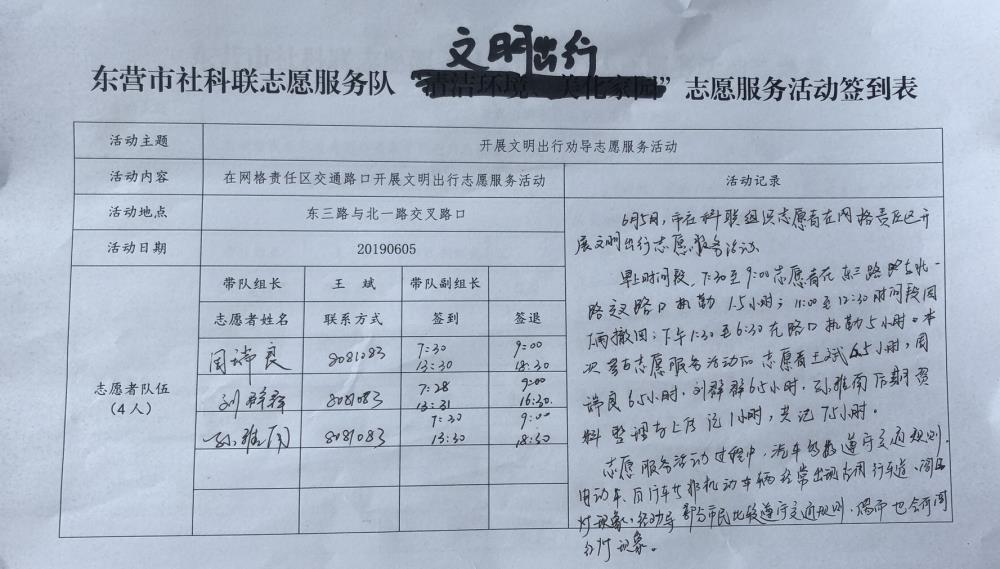 文明出行
东营市社科联志愿服务队“清洁环境 美化家园”志愿服务活动签到表
活动主题 开展文明出行劝导志愿服务活动
活动内容 在网格责任区交通路口开展文明出行志愿服务活动 活动记录
活动地点 东三路与北一路交叉路口
活动日期 20190605
带队组长 王 斌 带队副组长
志愿者姓名 联系方式 签到 签退
志愿者队伍
(4人)
周瑞良 8081083 7:30 9:00
13:30 18:30
刘群群 8081083 7:28 9:00
13:31 16:30
孙雅南 8081083 7:30 9:00
13:30 18:30
6月5日,市社科联组织志愿者在网格责任区开
展文明出行志愿服务活动.
早上时间段,7:30至9:00志愿者在东三路与北一
路交叉路口执勤1.5小时;11:00至12:30时间段因
雨撤回;下午1:30至6:30在路口执勤5小时。本
次参与志愿服务活动的志愿者王斌6.5小时,周
瑞良6.5小时,刘群群6.5小时,孙雅南后期资
料整理与上报记1小时,共记7.5小时。
志愿服务活动过程中,汽车能遵守交通规则.
电动车、自行车等非机动车辆经常出现占用行车道、闯红
灯现象,经劝导部分市民比较遵守交通规则,偶而也会有闯
红灯现象。